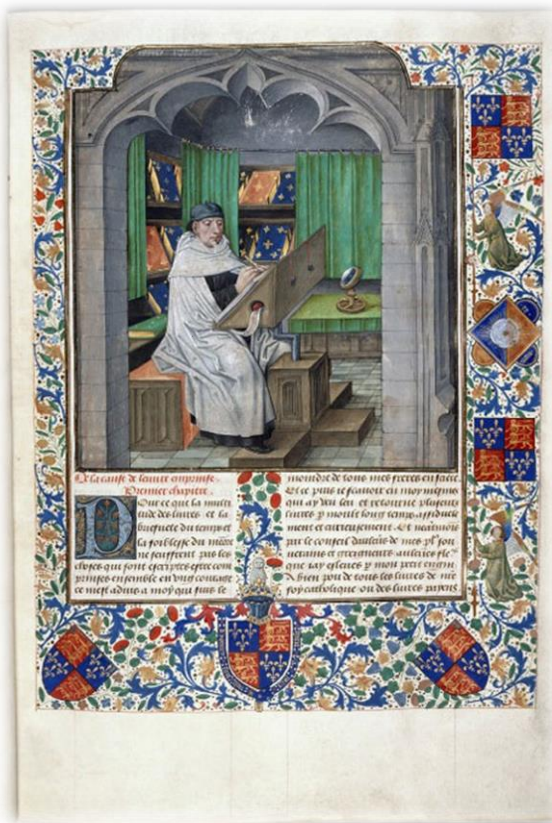 De la cause de leuure emprinse.
Premier chapitre.
Pour ce que la multi
tude des liures et la
briefuete du temps et
la foiblesse du
ne seuffrent pas les
choses qui sont escriptes estre com
prinses ensemble en vng courage
ce mest aduis a moy qui suis le
moindre de tous mes freres
Et ce puis ie en moy mesmes
qui ay veu leu et retourne pluseurs
liures moult long temps
ment et curieusement. Et
par le conseil daulcuns de mes
uerains et greigneurs
que iay esleues mon petit engin
A bien pou de tous les liures de nre
foy catholique ou des liures paiens